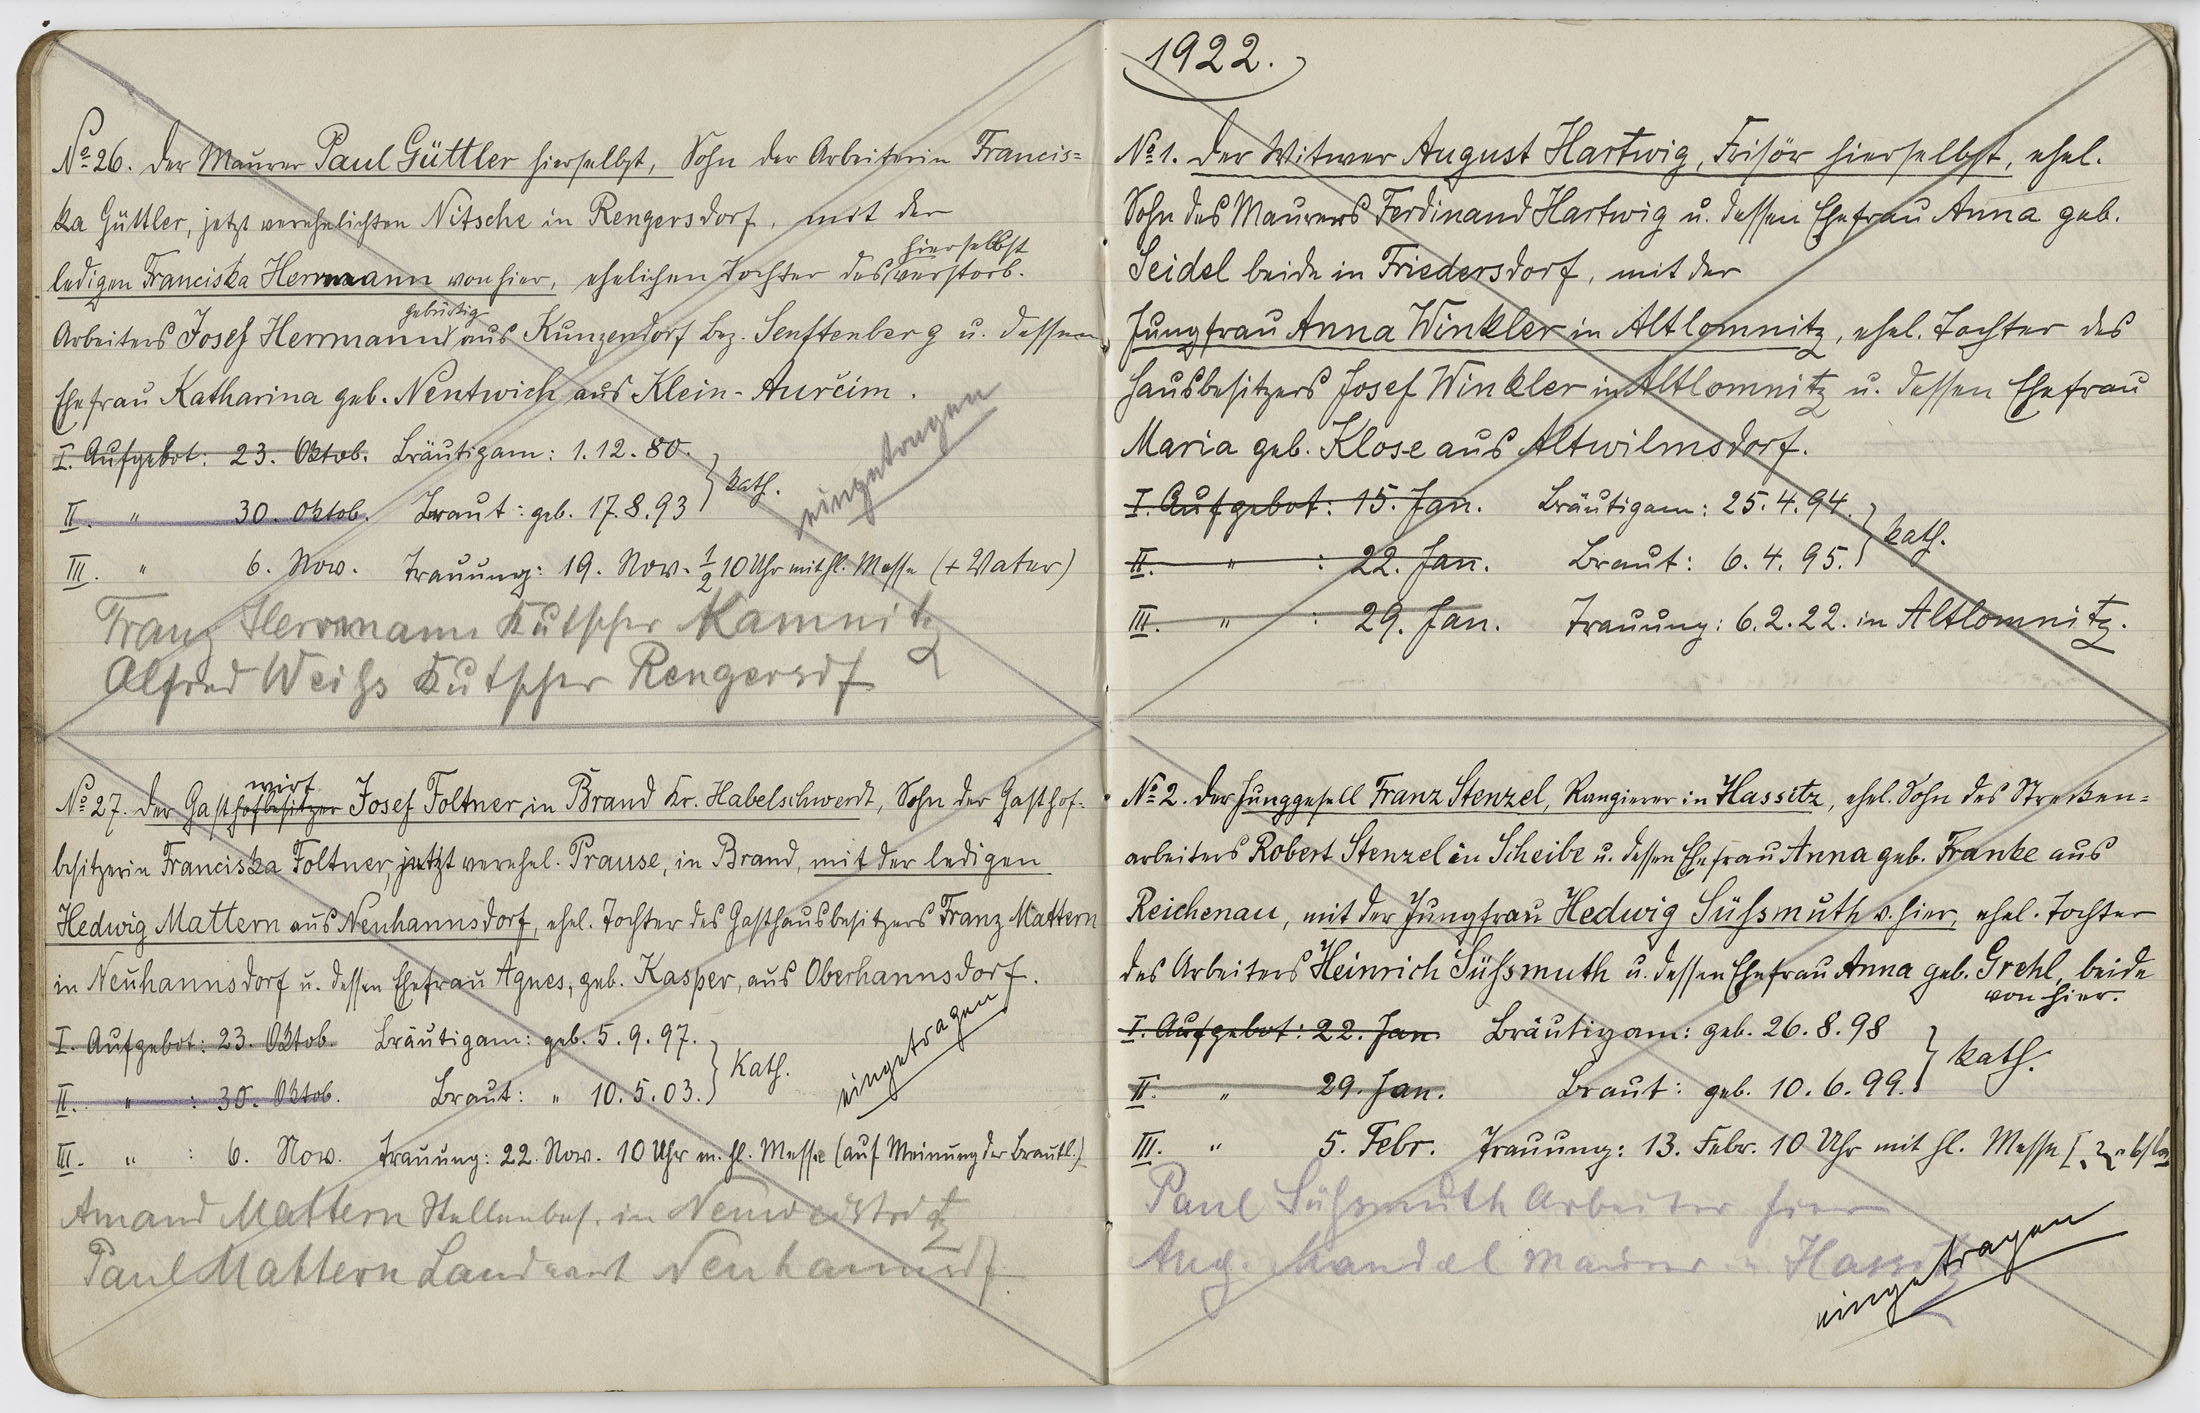 No 26. Der Maurer Paul Güttler hierselbst, Sohn der Arbeiterin Francis=
ka Güttler, jetzt verehelichten Nitsche in Rengersdorf, mit der
hierselbst
ledigen Franciska Herrmann von hier, ehelichen Tochter des verstorb.
gebürtig
Arbeiters Josef Herrmann aus Kunzendorf Bez. Senftenberg u. dessen
Ehefrau Katharina geb. Nentwich aus Klein-Aurčim.
I. Aufgebot: 23. Oktob. Bräutigam: 1.12.80.
II. " 30. Oktob. Braut: geb. 17.8.93 } kath.
eingetragen
III. " 6. Nov. Trauung: 19. Nov. ½10 Uhr mit hl. Messe (+ Vater)
Franz Herrmann Kutscher Kamnitz
Alfred Weihs Kutscher Rengersdf
wirt
No 27. Der Gasthofbesitzer Josef Foltner in Brand Kr. Habelschwerdt, Sohn der Gasthof-
besitzerin Franciska Foltner, jetzt verehel. Prause, in Brand, mit der ledigen
Hedwig Mattern aus Neuhannsdorf, ehel. Tochter des Gasthausbesitzers Franz Mattern
in Neuhannsdorf u. dessen Ehefrau Agnes, geb. Kasper, aus Oberhannsdorf.
I. Aufgebot: 23. Oktob. Bräutigam: geb. 5.9.97.
II. " : 30. Oktob. Braut: " 10.5.03. } Kath.
eingetragen
III. " : 6. Nov. Trauung: 22. Nov. 10 Uhr m. hl. Messe (auf Meinung der Brautl.)
Amand Mattern Stellenbes. in
Paul Mattern Landwirt Neuhannsdf.
1922.
No 1. Der Witwer August Hartwig, Frisör hierselbst, ehel.
Sohn des Maurers Ferdinand Hartwig u. dessen Ehefrau Anna geb.
Seidel beide in Friedersdorf, mit der
Jungfrau Anna Winkler in Altlomnitz, ehel. Tochter des
Hausbesitzers Josef Winkler in Altlomnitz u. dessen Ehefrau
Maria geb. Klose aus Altwilmsdorf.
I. Aufgebot: 15. Jan. Bräutigam: 25.4.94.
II. " : 22. Jan. Braut: 6.4.95. } kath.
III. " : 29. Jan. Trauung: 6.2.22. in Altlomnitz.
No 2. Der Junggesell Franz Stenzel, Rangierer in Hassitz, ehel. Sohn des Strecken=
arbeiters Robert Stenzel in Scheibe u. dessen Ehefrau Anna geb. Franke aus
Reichenau, mit der Jungfrau Hedwig Süßmuth v. hier, ehel. Tochter
des Arbeiters Heinrich Süßmuth u. dessen Ehefrau Anna geb. Grehl, beide
von hier.
I. Aufgebot: 22. Jan. Bräutigam: geb. 26.8.98
II. " 29. Jan. Braut: geb. 10.6.99. } kath.
III. " 5. Febr. Trauung: 13. Febr. 10 Uhr mit hl. Messe
Paul Süßmuth Arbeiter hier
Aug. Mandel Maurer in Hassitz
eingetragen